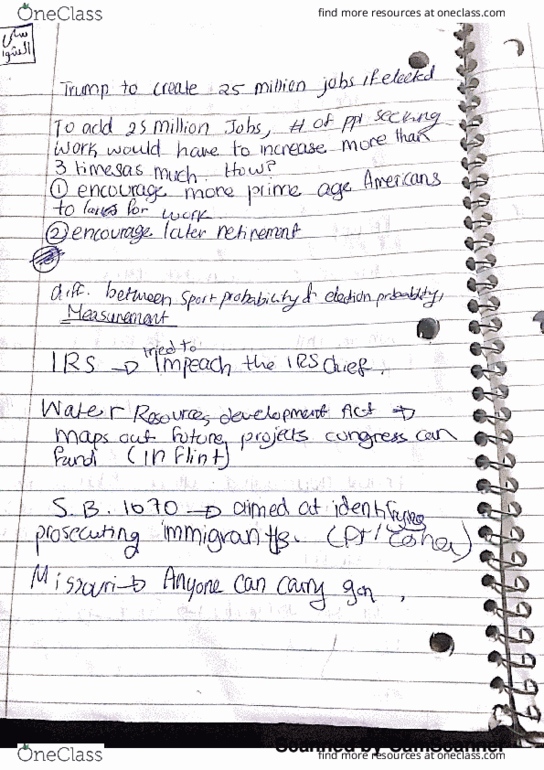 OneClass
find more resources at oneclass.com
Trump to create 25 million jobs if elected
To add 25 million Jobs, # of ppl seeking
work would have to increase more than
3 times as much. How?
① encourage more prime age Americans
to for work
② encourage later retirement
diff. between sport probability & election probability,
Measurement
tried to
IRS → Impeach the IRS chief.
Water Resources development Act →
maps out future projects congress can
fund (in Flint)
S.B. 1070 → aimed at identifying
prosecuting immigrants.
Missouri → Anyone can carry gun.
Scanned by CamScanner
OneClass
find more resources at oneclass.com